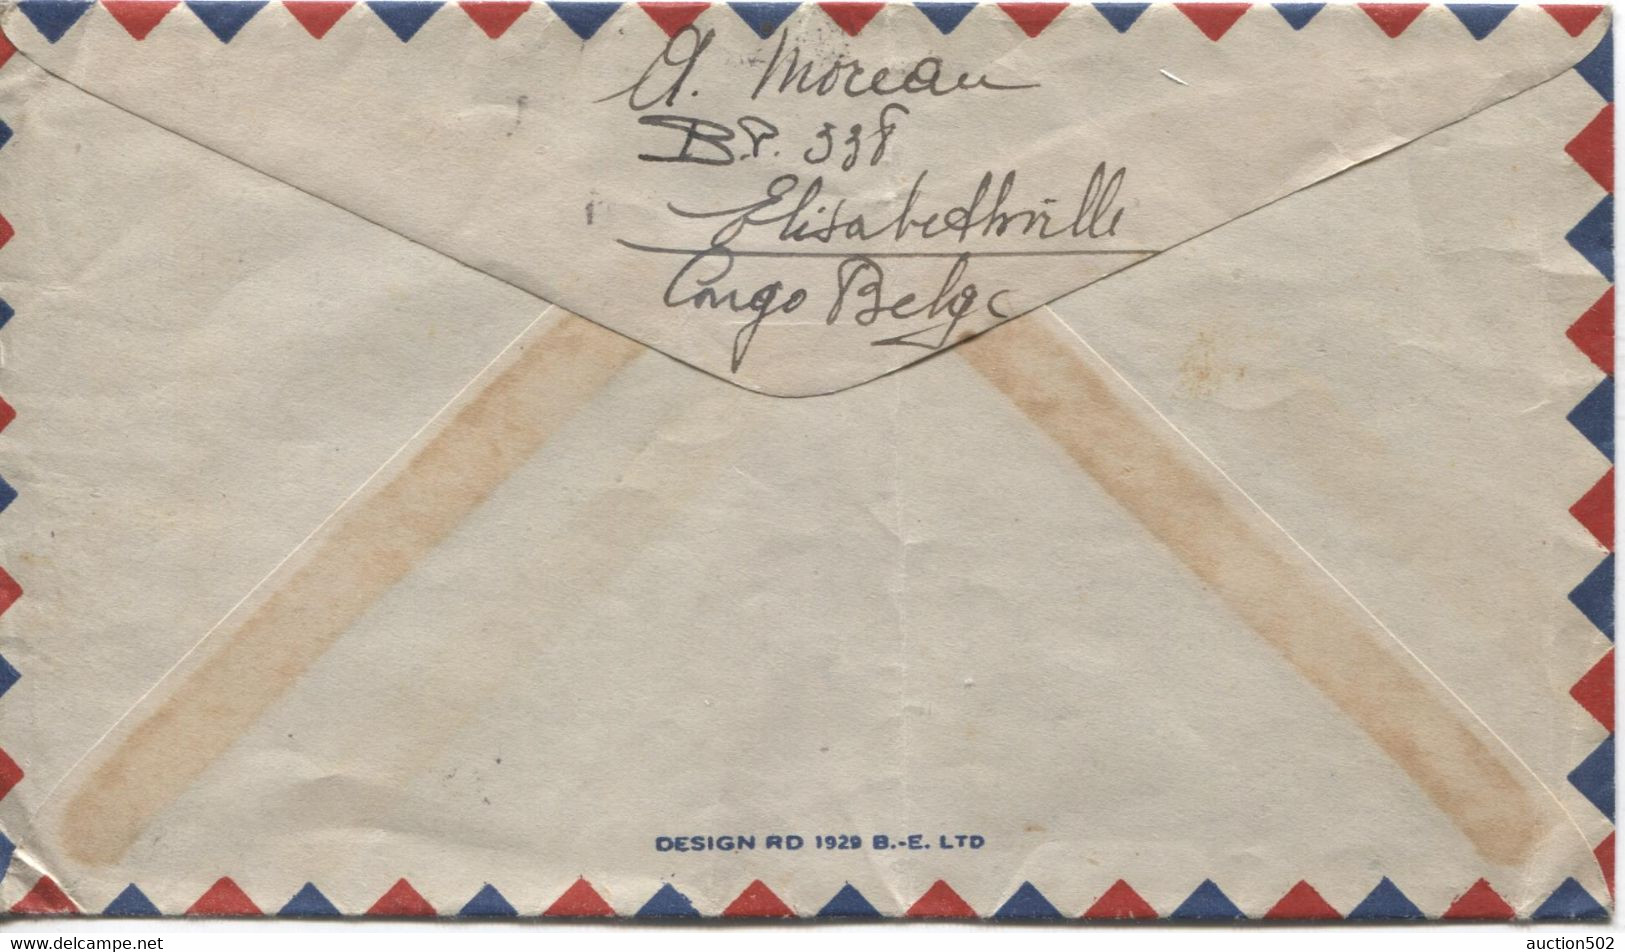 A. Moreau
B.P. 338
Elisabethville
Congo Belge
DESIGN RD 1929 B.-E. LTD
www.delcampe.net
auction502